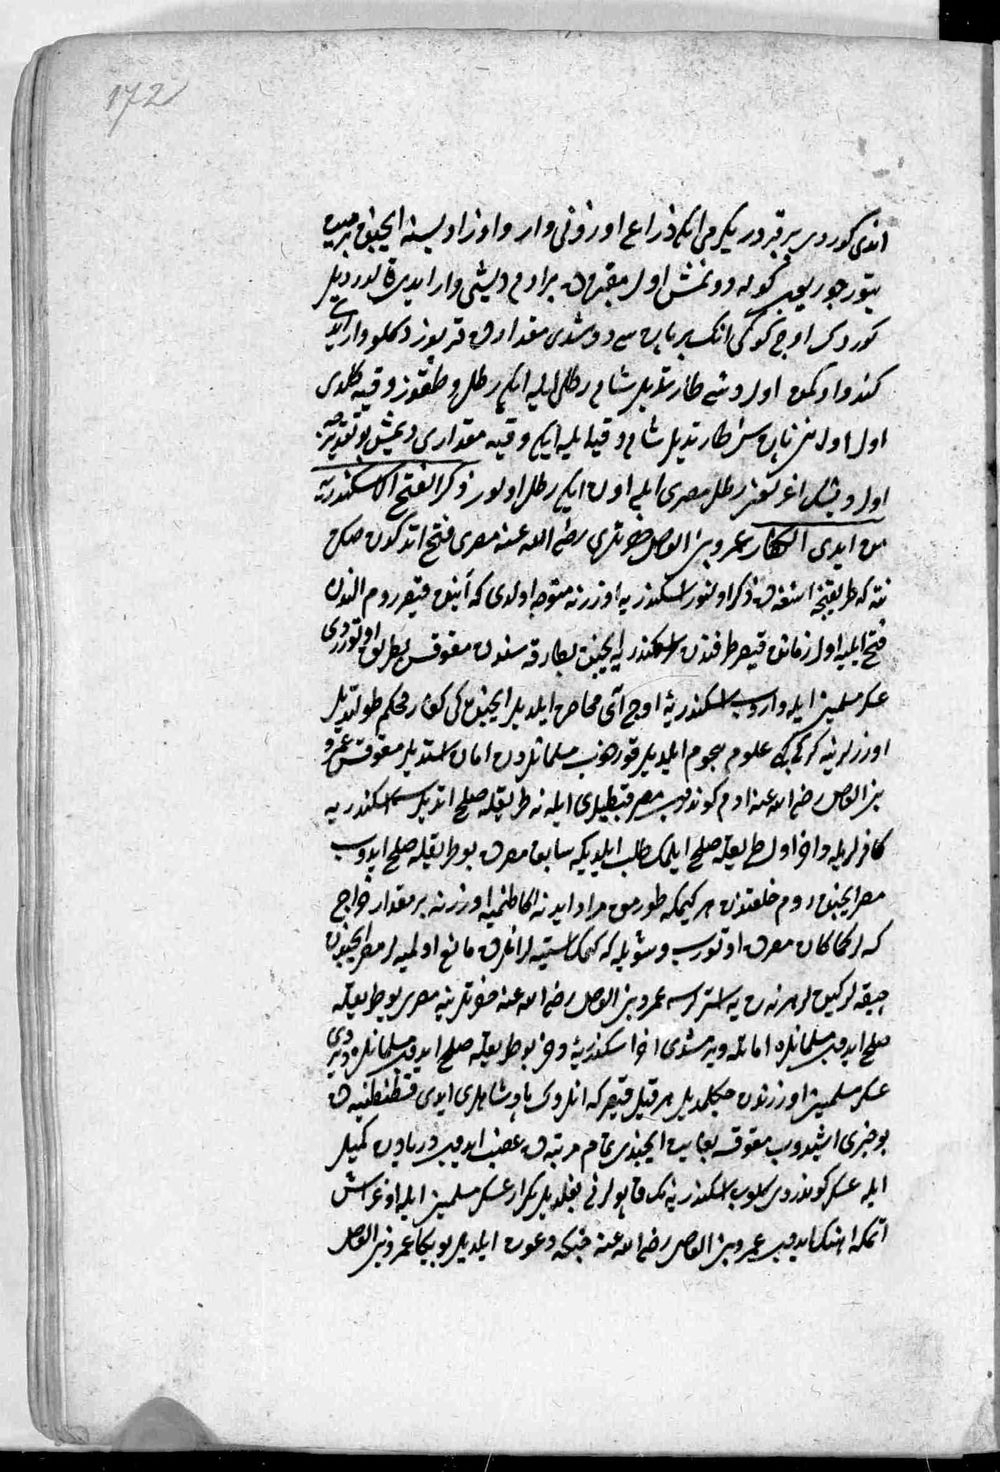 172
اندی کوردی بر قبردر یکرمی ایکی ذراع اوزونی وار و اوزاولسنه ایچنده بر میت
یتور چوریوب کوله دونمش اول مقبره‌ده بر ادم دیشی وار ایدی قالدردیلر
کوردی اوجی کوکی انک بر یاره‌سی دوشدی مقداری قربوز دکلو وار ایدی
اولدوغی طارتدیلر شامی رطلی ایله ایکی رطل و طقوز وقیه کلدی
اول اول طارتدیلر شامی وقیه ایله ایکی وقیه مقداری دیمش بو تقدیرجه
اول دیشک اغرلغی رطل مصری ایله اون ایکی رطل اولور ذکر الفتح الاسکندریه
من ایدی الکفار عمرو بن العاص حضرتلری رضی الله عنه مصری فتح اتدکدن صکره
نته که طریقنجه ذکر اولنور اسکندریه اوزرنه متوجه اولدی که آنی قیصر روم الندن
فتح ایلیه اول زمانده قیصر طرفندن اسکندریه ایچنده بطارقه سندن مقوقس بطریق اوتوردی
عسکر مسلمین ایله واروب اسکندریه اوچ آی محاصره ایلدیلر ایچنده کی کفار محکم طولتدیلر
اوزرلرینه هجوم ایلدیلر قورقوب مسلمانلردن امان استدیلر مقوقس عمرو
بن العاص رضی الله عنه ادم کوندروب مصر قبطیلری ایله نه طریقله صلح اتدیلرسه اسکندریه
کافرلریله داخی اول طریقله صلح ایلمک طلب ایلدیکه سابقا مصرده بو طریقله صلح ایدوب
مصر ایچنده روم خلقندن هر کیمکه طورمق مراد ایدنه اکا طنمیه اوزرنه بر مقدار خراج
که لرکاکان مصرده اوتوروب و شویله که کتمک استیه لر انلره مانع اولمیه لر مصر ایچندن
چیقه لر کیده لر هر نره‌یه استرلرسه عمرو بن العاص رضی الله عنه حضرتلرینه مصری بو طریقله
صلح ایدوب مسلمانلره امانله ویرمشدی اخر اسکندریه دخی بو طریقله صلح ایدوب مسلمانلره ویردی
عسکر مسلمین اوزرندن چکلدیلر هرقیل قیصر که انلروک پادشاهلری ایدی قسطنطنیه‌ده
بو خبری اشیدوب مقوقسه بغایت ایچندی تمام مرتبه‌ده غضب ایدوب دریادن کمیلر
ایله عسکر کوندردی کلوب اسکندریه نک قاپولرنی بغلدیلر تکرار عسکر مسلمین ایله اوغراش
اتمکه اهنک ایدوب عمرو بن العاص رضی الله عنه جنکه دعوت ایلدیلر بو یکا عمرو بن العاص